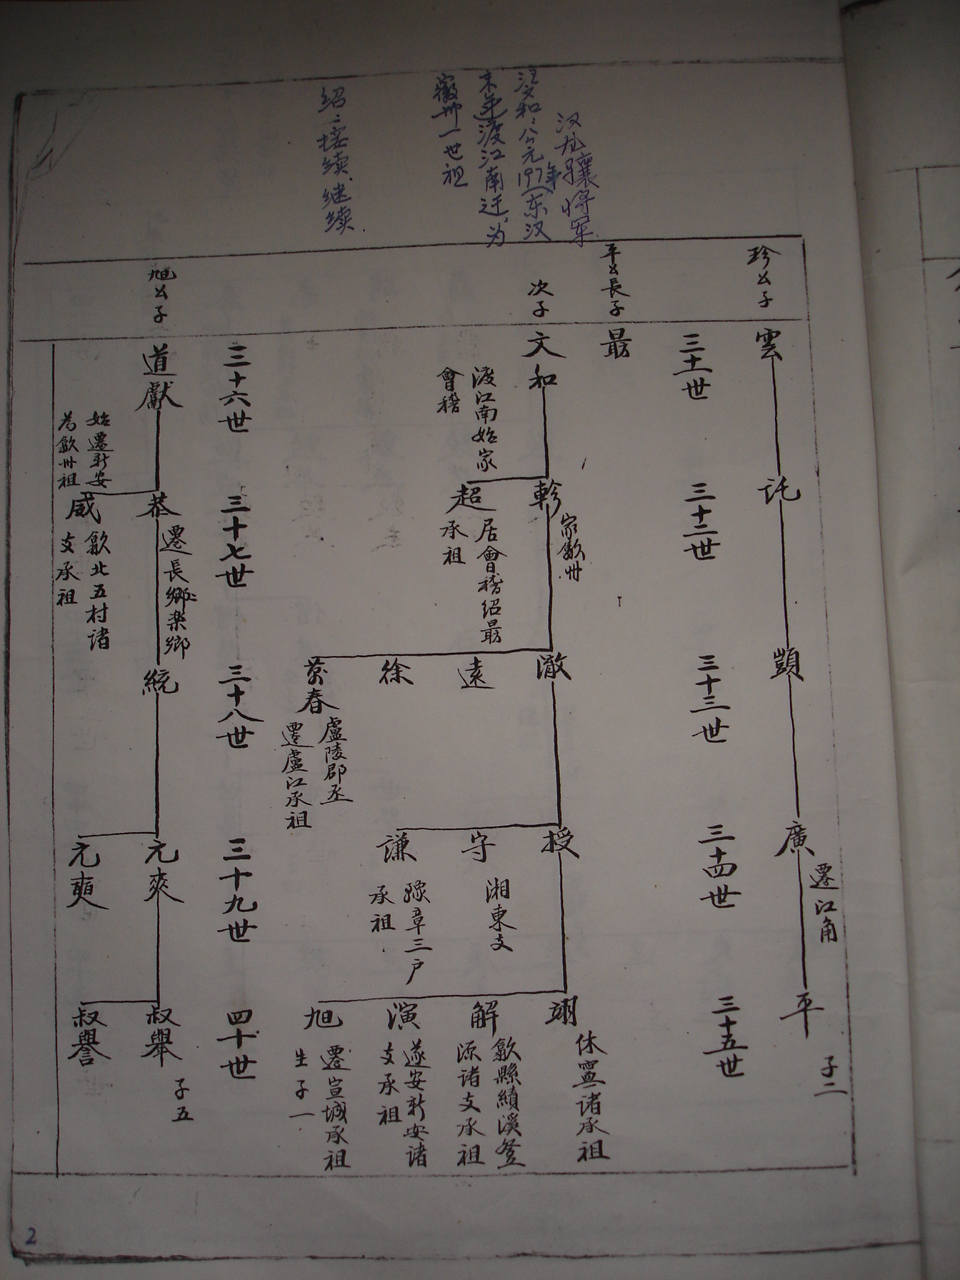 汉龙驤将军
注文和：公元197年(东汉
末年)渡江南迁，为
徽州一世祖
绍：接续.继续.
珍公子
平公長子
次子
旭公子
三十一世
三十二世
三十三世
三十四世
三十五世
雲
託
顗
廣
遷江角
平
子二
最
文和
渡江南始家
會稽
軫
家歙州
超
居會稽紹最
承祖
澈
遠
徐
萬春
盧陵郡丞
遷盧江承祖
授
守
湘東支
謙
豫章三户
承祖
翊
休寧諸承祖
解
歙縣績溪登
源諸支承祖
演
遂安新安諸
支承祖
旭
遷宣城承祖
生子一
三十六世
三十七世
三十八世
三十九世
四十世
道獻
始遷新安
為歙州祖
恭
遷長鄉樂鄉
威
歙北五村諸
支承祖
統
元爽
元奭
叔舉
子五
叔譽
2